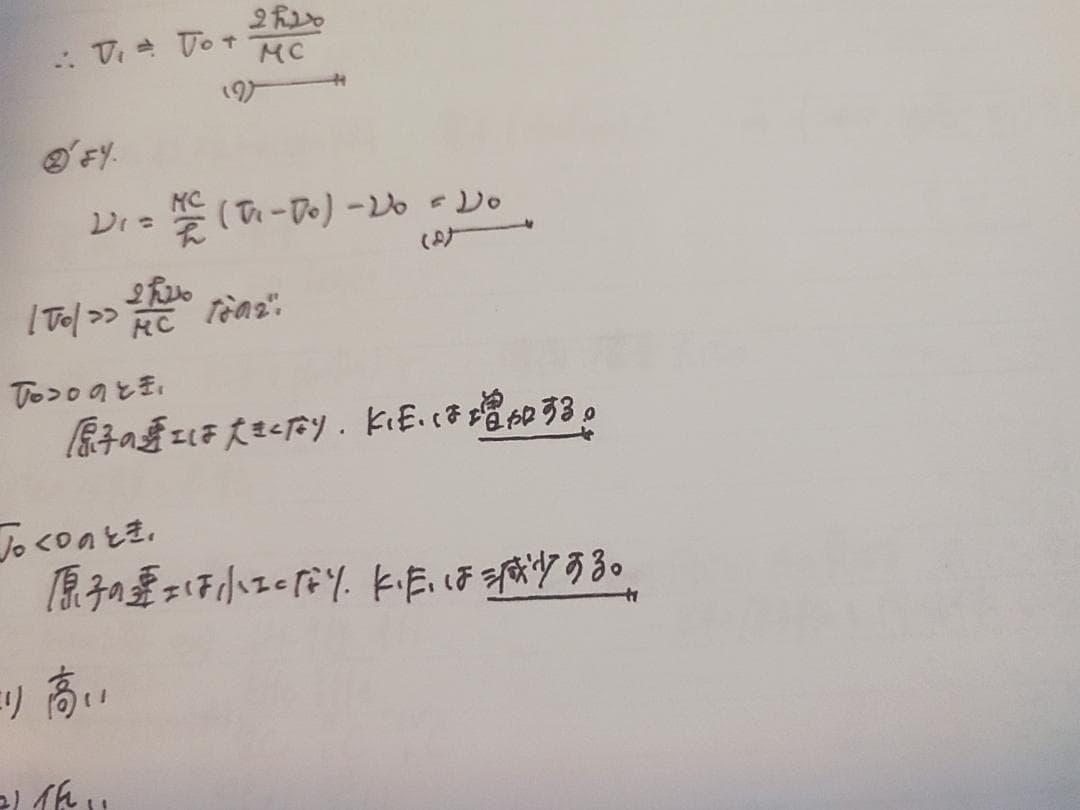 ∴ v₁ ≒ v₀ + 2hν₀/MC
(7)
②'より.
ν₁ = MC/h (v₁ - v₀) - ν₀ = ν₀
(8)
|v₀| >> 2hν₀/MC なので.
v₀>0のとき、
原子の速さは大きくなり. K.E.は増加する。
v₀<0のとき、
原子の速さは小さくなり. K.E.は減少する。
1) 高い
2) 低い